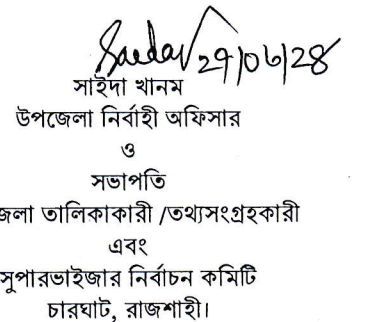 29/06/28
সাইদা খানম
উপজেলা নির্বাহী অফিসার
ও
সভাপতি
জেলা তালিকাকারী /তথ্যসংগ্রহকারী
এবং
সুপারভাইজার নির্বাচন কমিটি
চারঘাট, রাজশাহী।